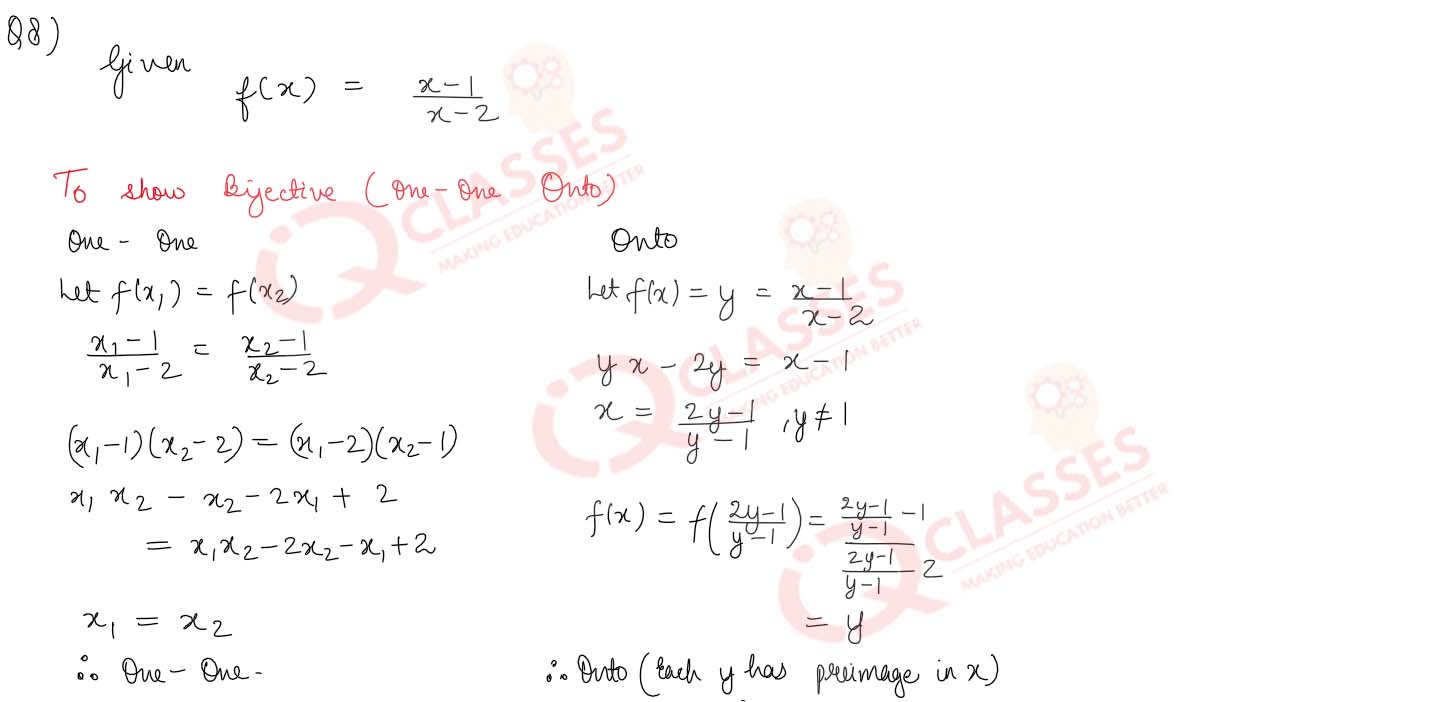 Q8)
Given f(x) = (x-1)/(x-2)
To show Bijective (One-One Onto)
One - One
Let f(x₁) = f(x₂)
(x₁-1)/(x₁-2) = (x₂-1)/(x₂-2)
(x₁-1)(x₂-2) = (x₁-2)(x₂-1)
x₁ x₂ - x₂ - 2x₁ + 2
= x₁x₂ - 2x₂ - x₁ + 2
x₁ = x₂
∴ One - One.
Onto
Let f(x) = y = (x-1)/(x-2)
yx - 2y = x - 1
x = (2y-1)/(y-1) , y ≠ 1
f(x) = f((2y-1)/(y-1)) = ((2y-1)/(y-1) - 1)/((2y-1)/(y-1) - 2)
= y
∴ Onto (Each y has preimage in x)
iQ CLASSES
MAKING EDUCATION BETTER
iQ CLASSES
MAKING EDUCATION BETTER
iQ CLASSES
MAKING EDUCATION BETTER